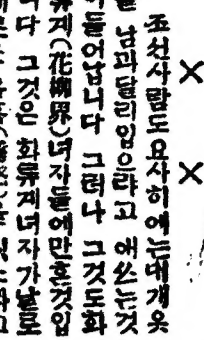 조선사람도요사히에는대개옷
남과달리입으랴고 애쓰는것
들어납니다 그러나 그것도화
류계(花柳界)녀자들에만흔것입
다 그것은 화류계녀자가날로